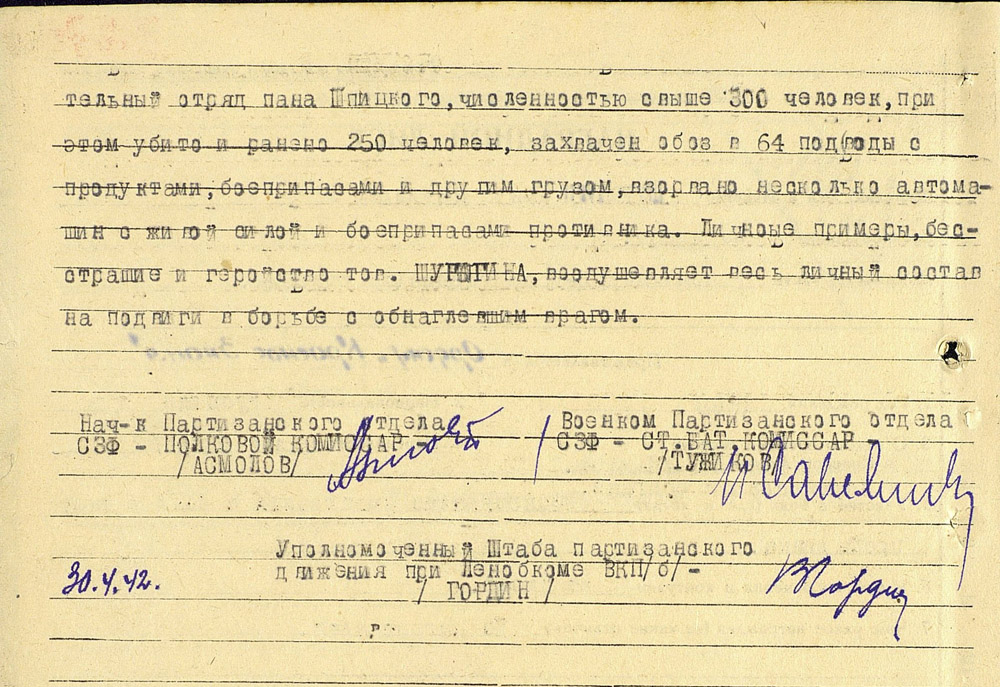 тельный отряд пана Шпицкого,численностью свыше 300 человек,при
этом убито и ранено 250 человек, захвачен обоз в 64 подводы с
продуктами,боеприпасами и другим грузом,взорвано несколько автома-
шин с живой силой и боеприпасами противника. Личные примеры,бес-
страшие и геройство тов. ШУРЫГИНА,воодушевляет весь личный состав
на подвиги в борьбе с обнаглевшим врагом.
Нач-к Партизанского отдела
СЗФ - ПОЛКОВОЙ КОМИССАР -
/АСМОЛОВ/
Военком Партизанского отдела
СЗФ - СТ.БАТ.КОМИССАР
/ТУЖИКОВ/
Уполномоченный Штаба партизанского
движения при Ленобкоме ВКП/б/-
/ ГОРДИН /